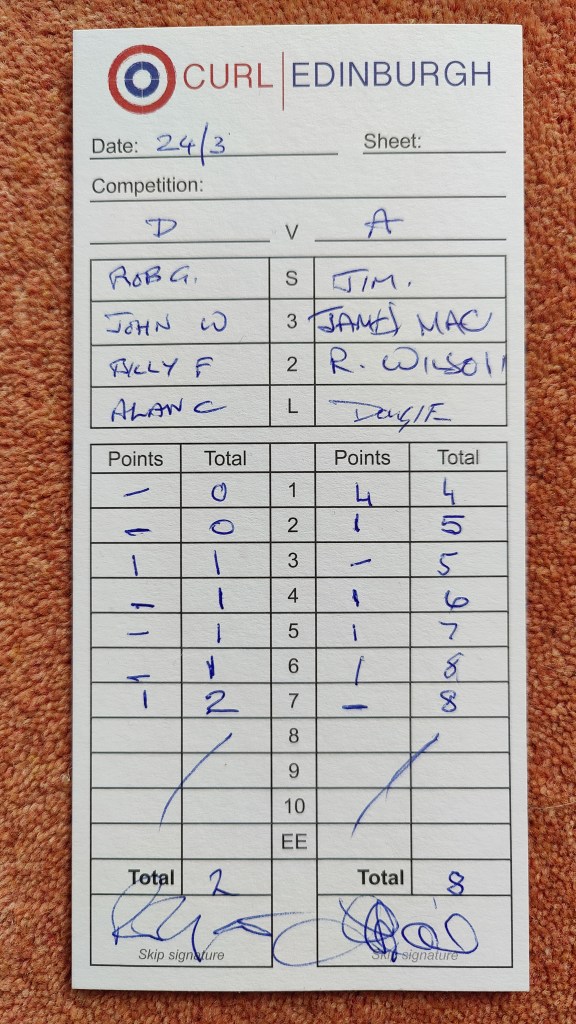 CURL EDINBURGH
Date: 24/3 Sheet:
Competition:
D V A
ROB G. S JIM.
JOHN W 3 JAMES MAC
BILLY F 2 R. WILSON
ALAN C L DOUGIE
Points Total Points Total
– 0 1 4 4
– 0 2 1 5
1 1 3 – 5
– 1 4 1 6
– 1 5 1 7
– 1 6 1 8
1 2 7 – 8
8
9
10
EE
Total 2 Total 8
Skip signature Skip signature